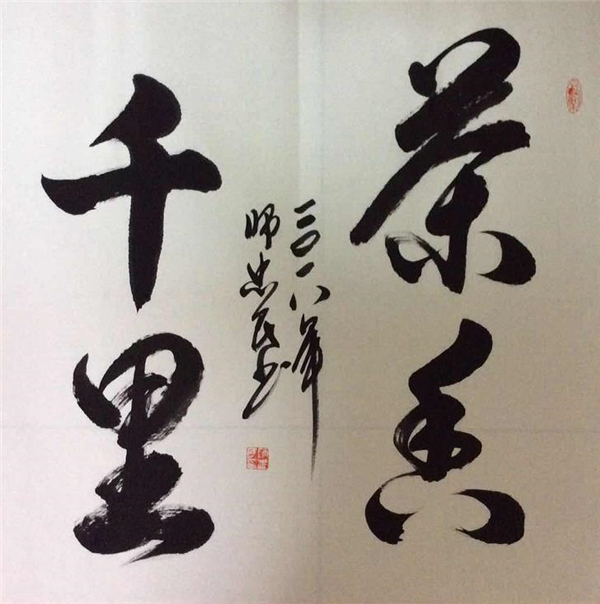 茶香
千里
二〇一八年
师忠民书